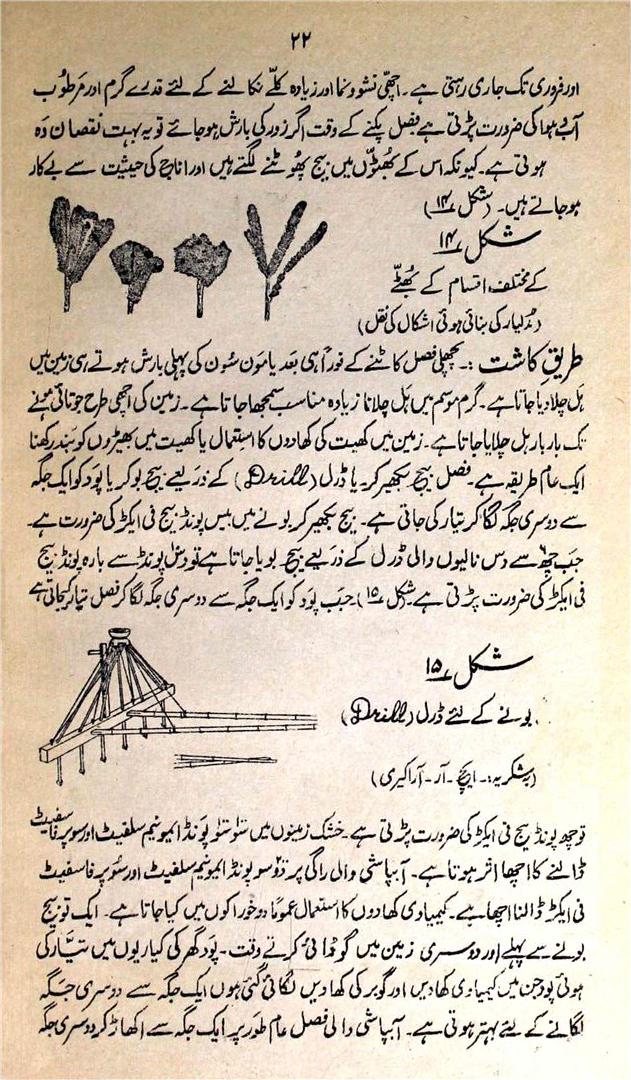 ۲۲
اور فروری تک جاری رہتی ہے۔ اچھی نشوونما اور زیادہ کلّے نکالنے کے لئے قدرے گرم اور مرطوب
آب و ہوا کی ضرورت پڑتی ہے فصل پکنے کے وقت اگر زور کی بارش ہو جائے تو یہ بہت نقصان دہ
ہوتی ہے۔ کیونکہ اس کے بھٹوّں میں بیج پھوٹنے لگتے ہیں اور اناج کی حیثیت سے بے کار
ہو جاتے ہیں۔ (شکل ۱۴)
شکل ۱۴
کے مختلف اقسام کے بھٹّے
(مُدلیار کی بنائی ہوئی اشکال کی نقل)
طریقِ کاشت :۔ پچھلی فصل کاٹنے کے فوراً ہی بعد یا مون سُون کی پہلی بارش ہوتے ہی زمین میں
ہل چلا دیا جاتا ہے۔ گرم موسم میں ہل چلانا زیادہ مناسب سمجھا جاتا ہے۔ زمین کی اچھی طرح جوتائی ہونے
تک بار بار ہل چلایا جاتا ہے۔ زمین میں کھیت کی کھادوں کا استعمال یا کھیت میں بھیڑوں کو بند رکھنا
ایک عام طریقہ ہے۔ فصل بیج بکھیر کر یا ڈرل (Drill) کے ذریعے بیج بو کر یا پَود کو ایک جگہ
سے دوسری جگہ لگا کر تیار کی جاتی ہے۔ بیج بکھیر کر بونے میں بیس پونڈ بیج فی ایکڑ کی ضرورت ہے۔
جب چھ سے دس نالیوں والی ڈرل کے ذریعے بیج بویا جاتا ہے تو دس پونڈ سے بارہ پونڈ بیج
فی ایکڑ کی ضرورت پڑتی ہے۔ (شکل ۱۵)۔ جب پود کو ایک جگہ سے دوسری جگہ لگا کر فصل تیار کی جاتی ہے
شکل ۱۵
بونے کے لئے ڈرل (Drill)
(بشکریہ:۔ ایچ۔ آر۔ آراکیری)
تو چھ پونڈ بیج فی ایکڑ کی ضرورت پڑتی ہے۔ خشک زمینوں میں سَو سَو پونڈ ایمونیم سلفیٹ اور سوپر فاسفیٹ
ڈالنے کا اچھا اثر ہوتا ہے۔ آبپاشی والی راگی پر دو سو پونڈ ایمونیم سلفیٹ اور سُوپر فاسفیٹ
فی ایکڑ ڈالنا اچھا ہے۔ کیمیاوی کھادوں کا استعمال عموماً دو خوراکوں میں کیا جاتا ہے۔ ایک تو بیج
بونے سے پہلے اور دوسری زمین میں گوڈائی کرتے وقت۔ پود گھر کی کیاریوں میں تیّار کی
ہوئی پود جن میں کیمیاوی کھادیں اور گوبر کی کھادیں لگائی گئی ہوں ایک جگہ سے دوسری جگہ
لگانے کے لئے بہتر ہوتی ہے۔ آبپاشی والی فصل عام طور پر ایک جگہ سے اکھاڑ کر دوسری جگہ